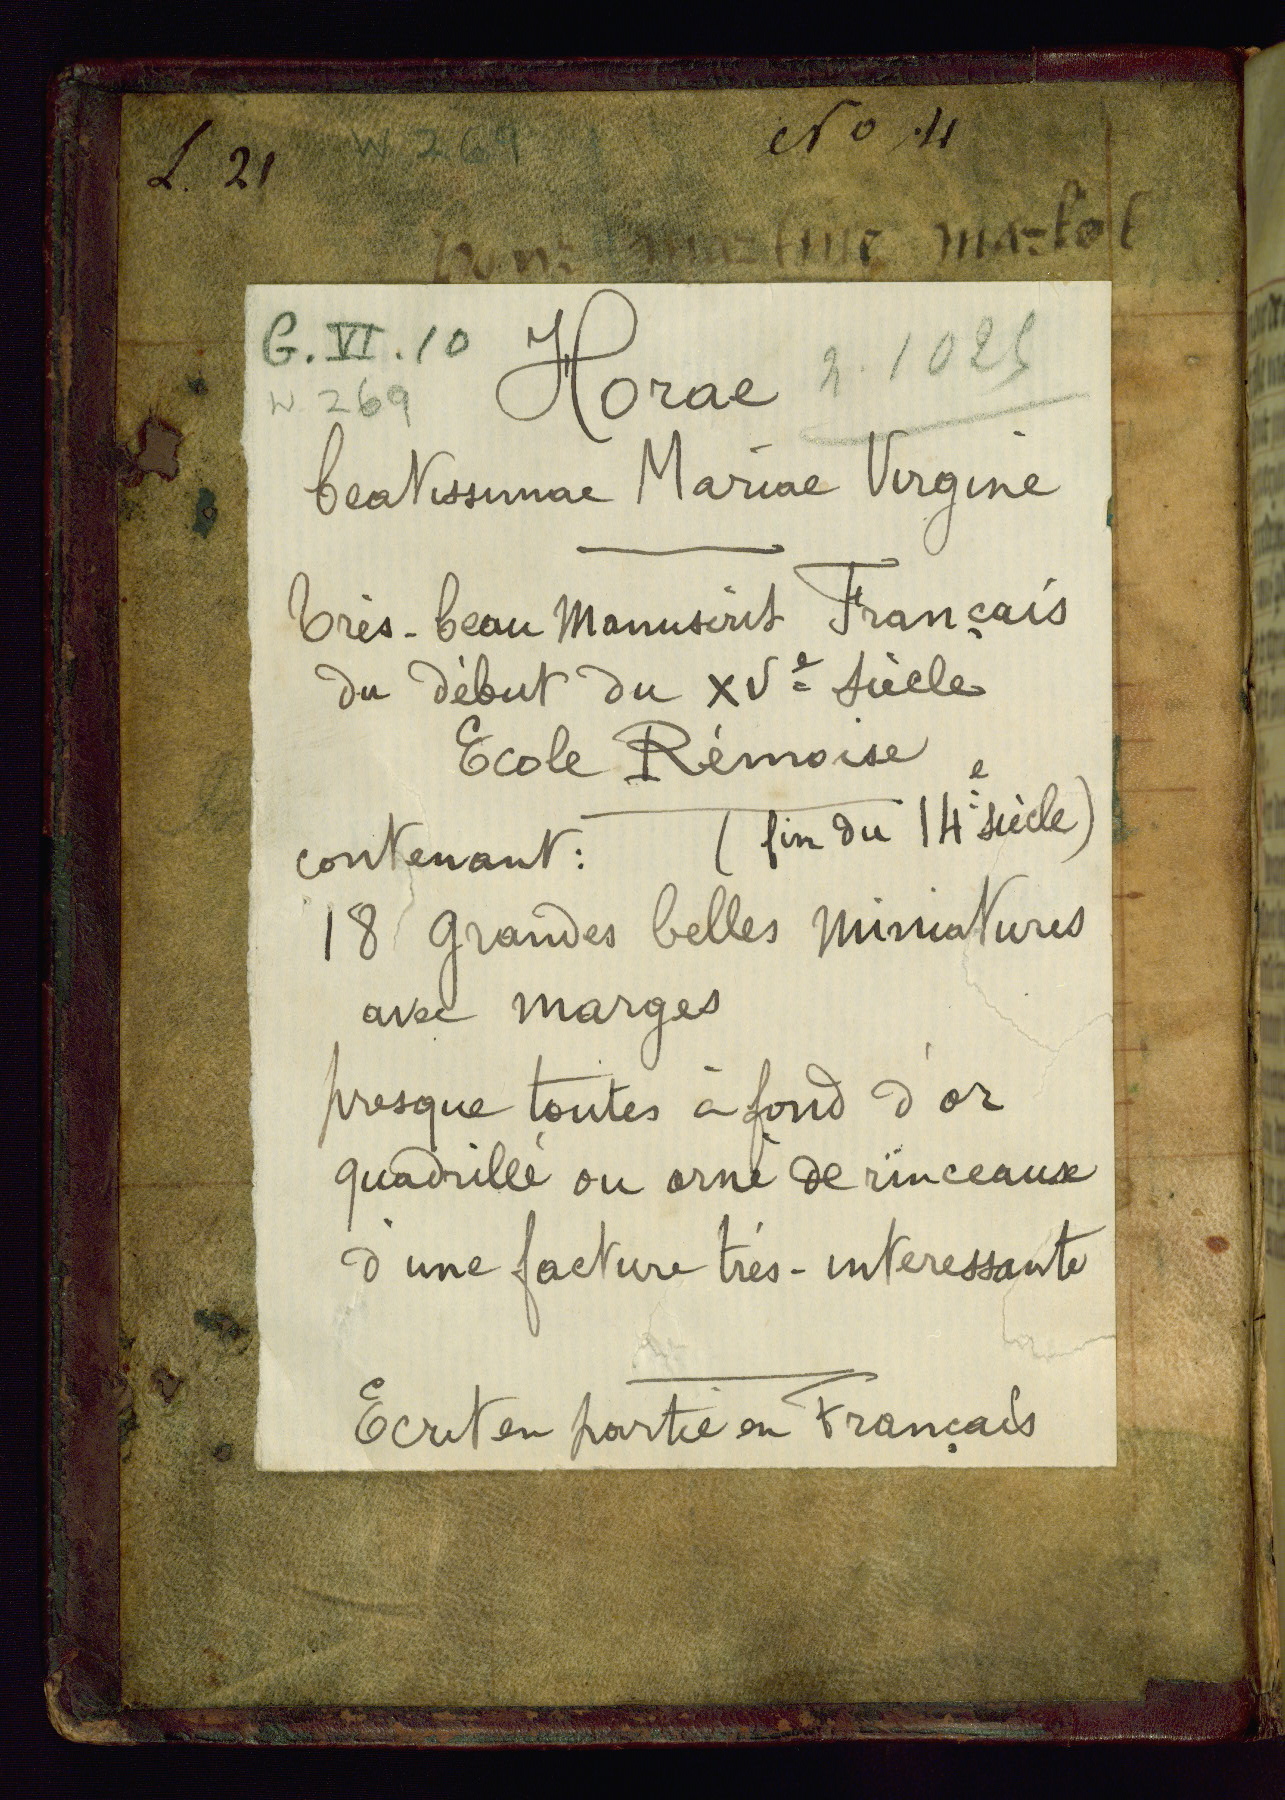 L. 21
W 269
No 4
martot
G. VI. 10
W. 269
Horae
beatissimae Mariae Virgine
Très-beau Manuscrit Français
du début du XVe siècle
Ecole Rémoise
(fin du 14e siècle)
contenant:
18 grandes belles miniatures
avec marges
presque toutes à fond d'or
quadrillé ou orné de rinceaux
d'une facture très-interessante
Ecrit en partie en Français